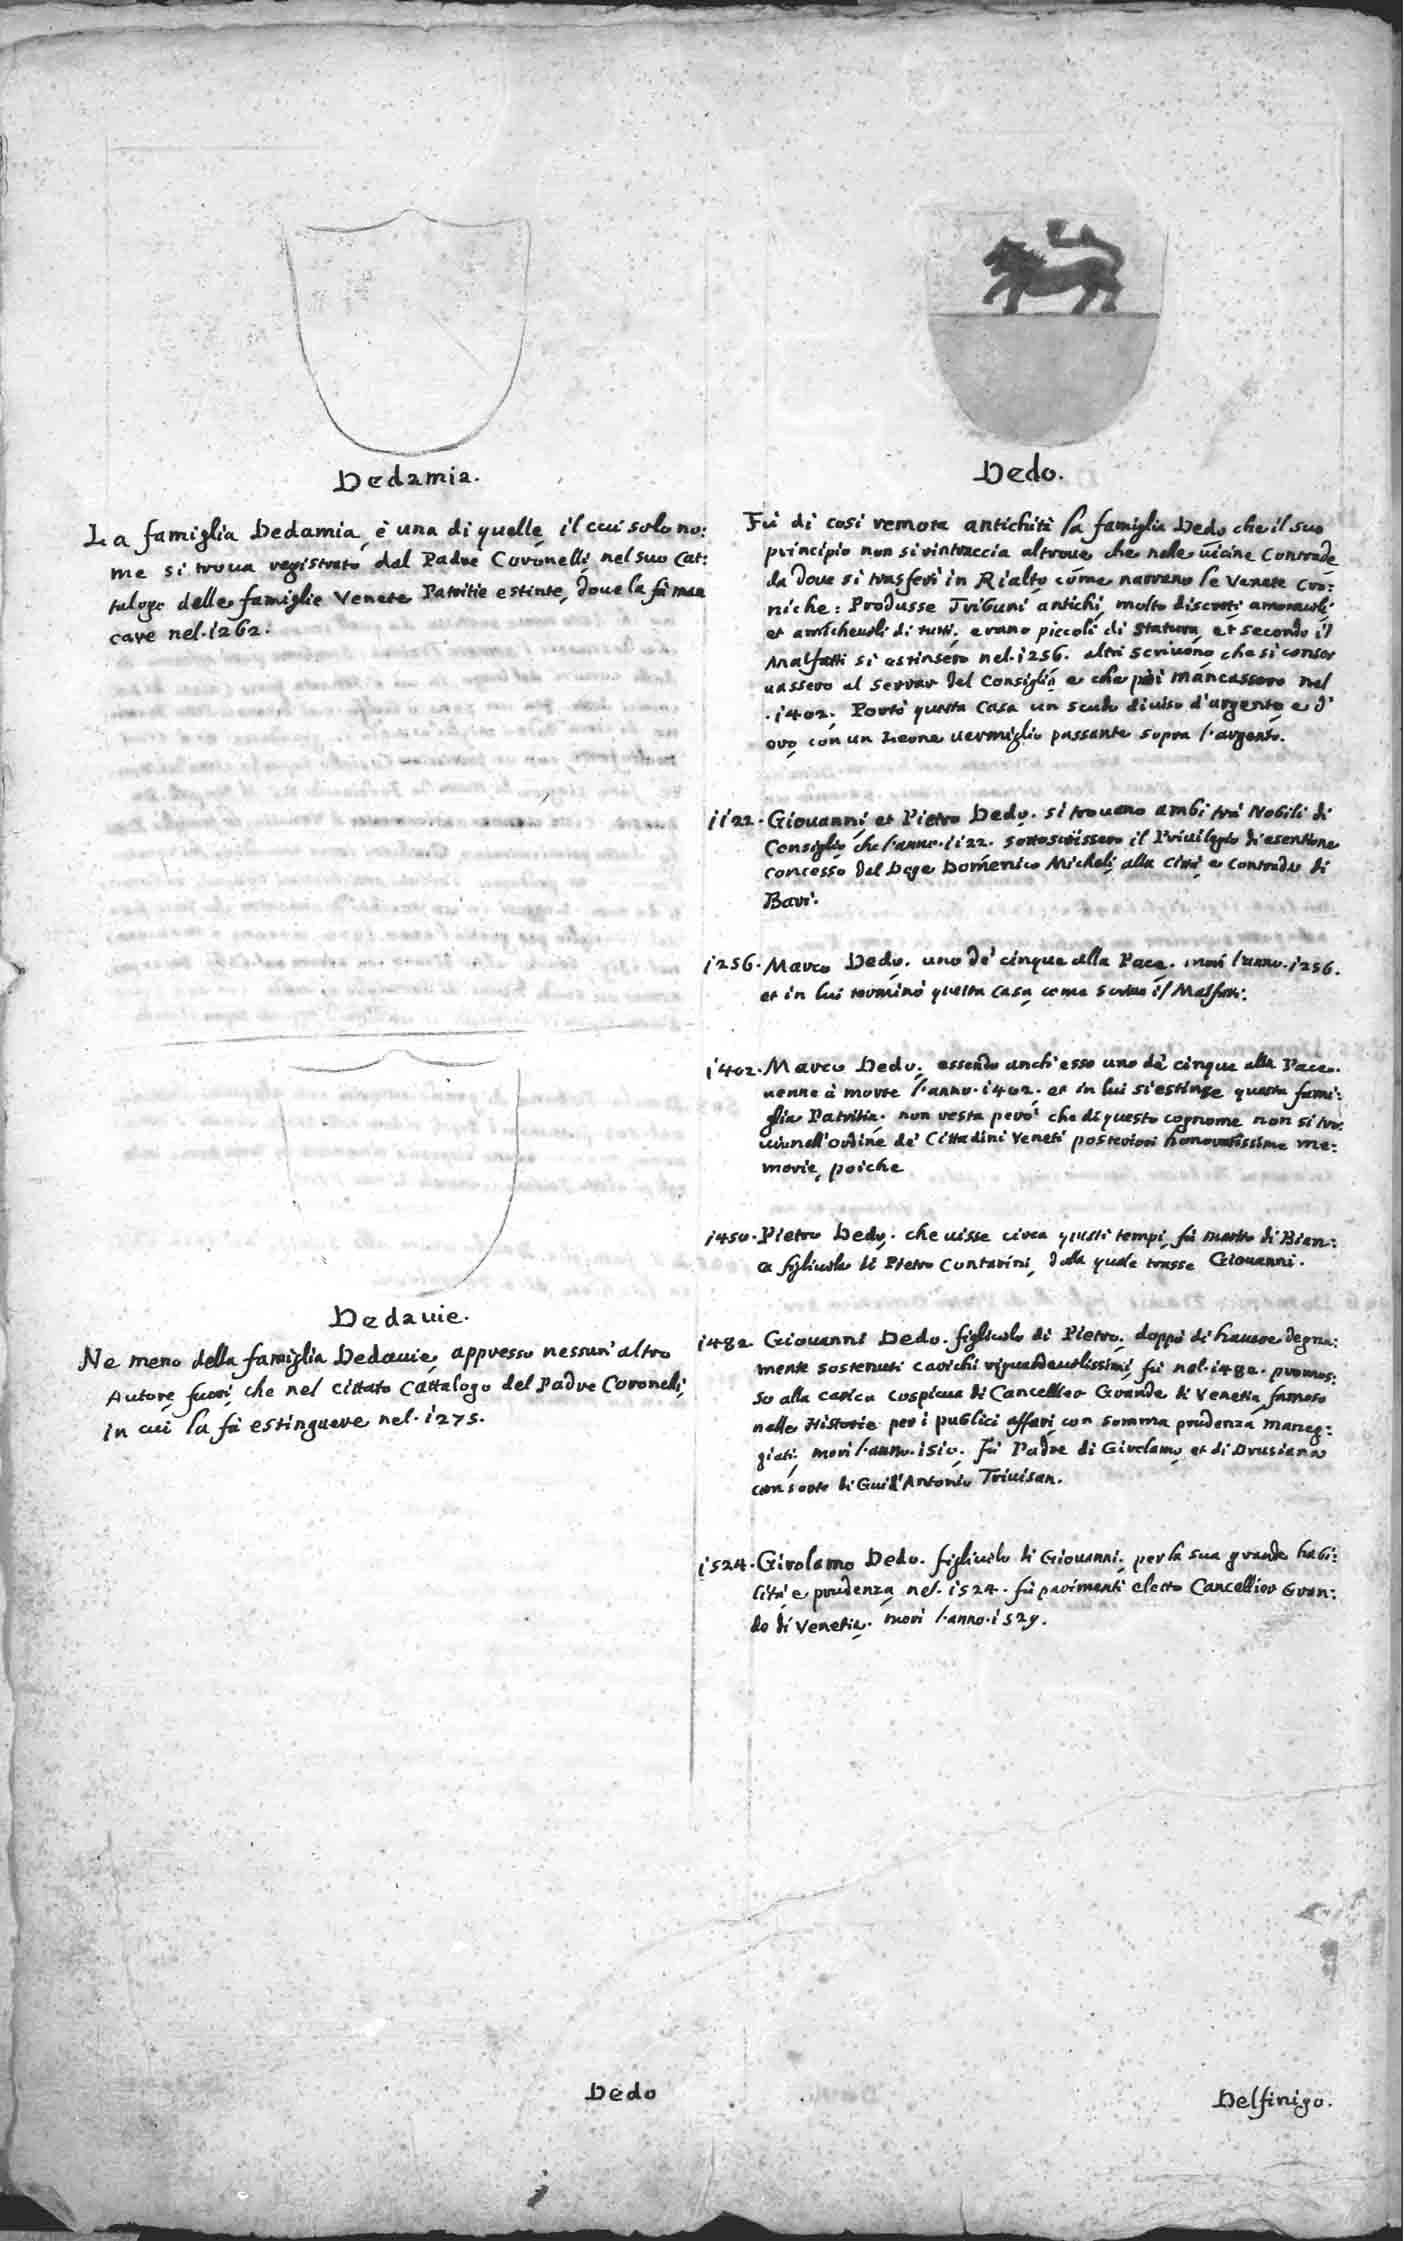 Dedamia.
La famiglia Dedamia, è una di quelle, il cui solo no:
me si troua registrato dal Padre Coronelli, nel suo Cat:
talogo delle famiglie Venete Patritie estinte, doue la fà man
care nel. 1262.
Dedauie.
Ne meno della famiglia Dedauie, appresso nessun' altro
Autore, fuori, che nel cittato Cattalogo del Padre Coronelli,
in cui la fà estinguere nel. 1275.
Dedo
Dedo.
Fù di così remota antichità la famiglia Dedo che il suo
principio non si rintraccia altroue, che nelle uicine Contrade
da doue si trasferì in Rialto, come narrano le Venete Cro:
niche: Produsse Tribuni antichi, molto discreti, amoreuoli,
et amicheuoli di tutti, erano piccoli di statura, et secondo il
Malfatti si estinsero nel. 1256. altri scriuono, che si conser
uassero al serrar del Consiglio, e che poi mancassero nel
.1402. Portò questa Casa un scudo diuiso d'argento, e d'
oro, con un Leone uermiglio passante sopra l'argento.
1122. Giouanni, et Pietro Dedo. si trouano ambi trà Nobili di
Consiglio, che l'anno. 1122. sottoscrissero il Priuilegio di esentione
concesso dal Doge Domenico Micheli, alla città, e contrade di
Bari.
1256. Marco Dedo. uno de' cinque alla Pace, morì l'anno. 1256.
et in lui terminò questa casa, come scriue il Malfatti.
1402. Marco Dedo, essendo anch'esso uno de' cinque alla Pace.
uenne à morte l'anno. 1402. et in lui si estinse questa fami:
glia Patritia. non resta però che di questo cognome non si tro:
uino nell'ordine de' Cittadini Veneti posteriori honoratissime me:
morie, poiche
1450. Pietro Dedo. che uisse circa questi tempi, fù marito di Bian:
ca figliuola di Pietro Contarini, dalla quale trasse Giouanni.
1482. Giouanni Dedo. figliuolo di Pietro, doppò di hauere degna:
mente sostenuti carichi riguardeuolissimi, fù nel. 1482. promos:
so alla carica cospicua di Cancellier Grande di Venetia, famoso
nelle Historie per i publici affari con somma prudenza maneg:
giati, morì l'anno. 1510. Fù Padre di Girolamo, et di Drusiana
consorte di Guid'Antonio Triuisan.
1524. Girolamo Dedo. figliuolo di Giouanni, per la sua grande habi:
lità e prudenza, nel. 1524. fù parimenti eletto Cancellier Gran:
de di Venetia. morì l'anno. 1529.
Delfinigo.